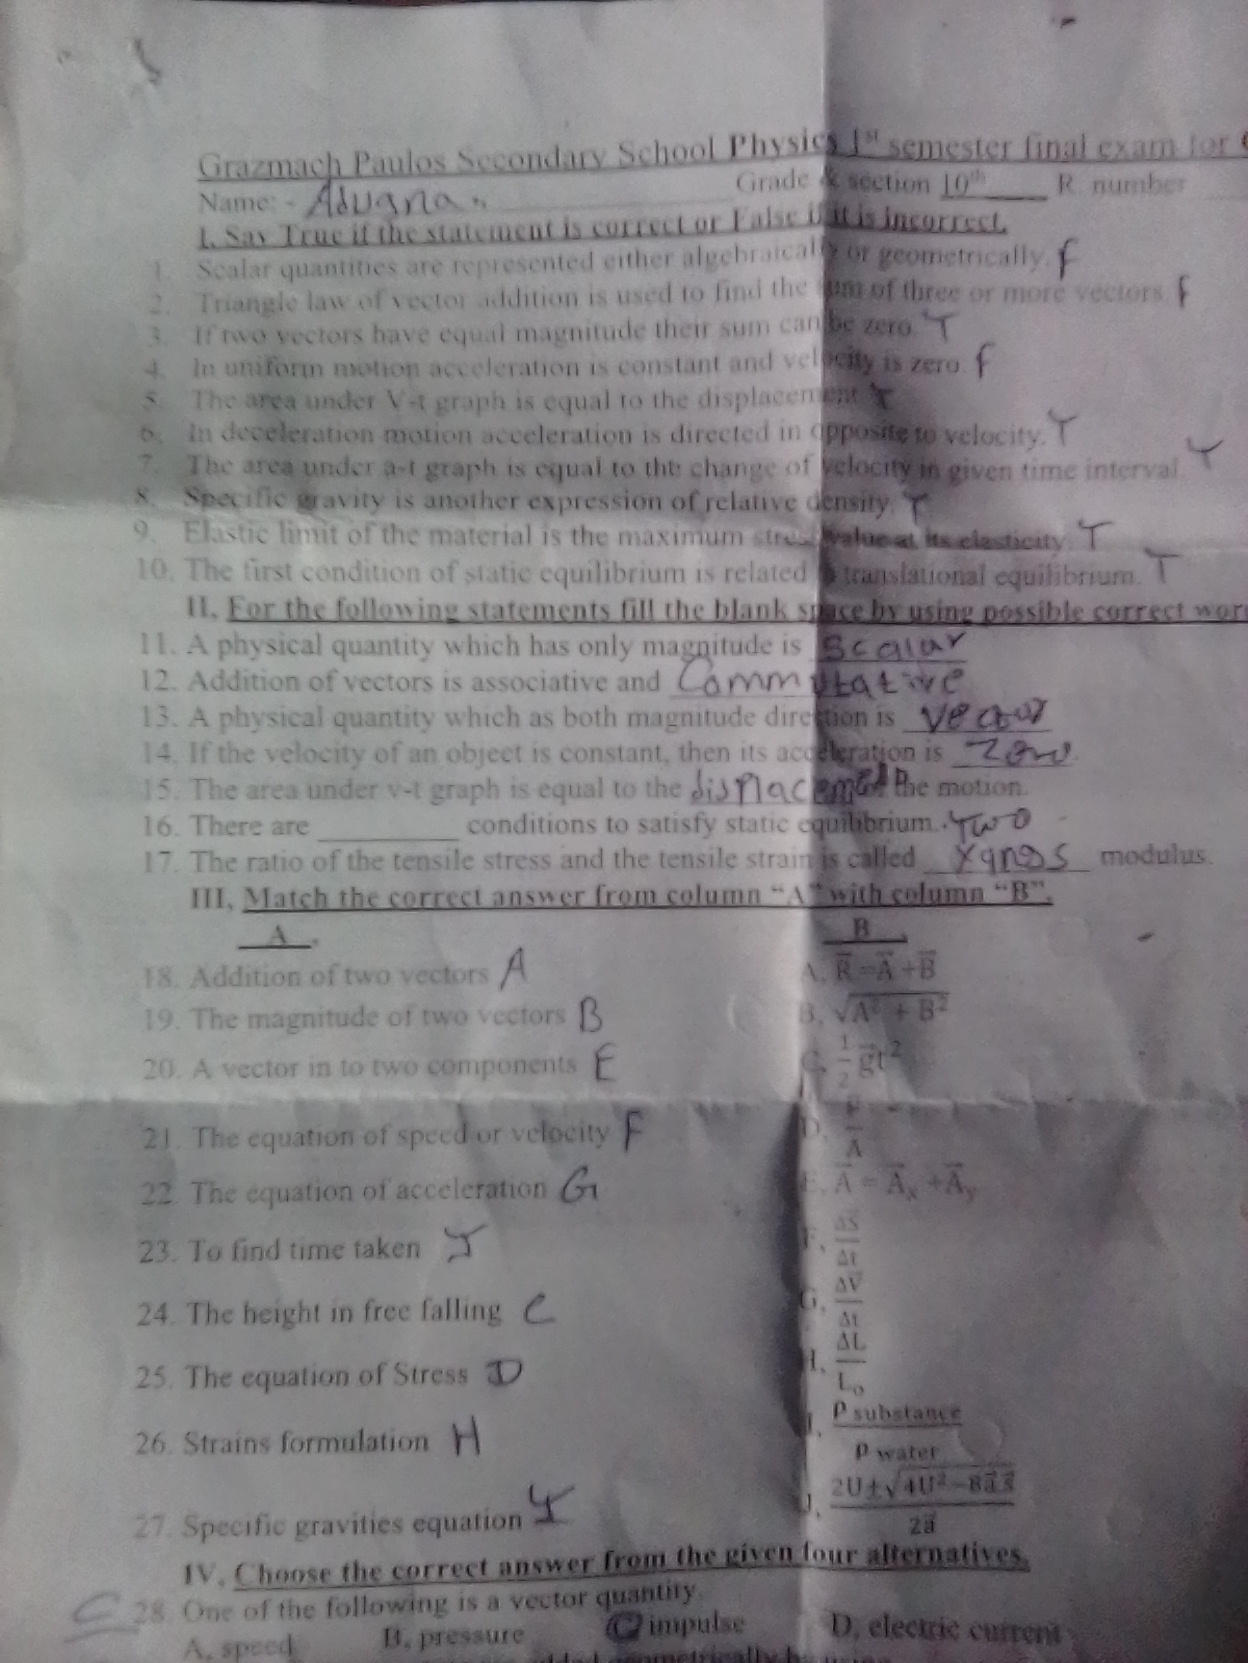 Grazmach Paulos Secondary School Physics 1st semester final exam for
Name: - Aduana Grade & section 10th R. number
I. Say True if the statement is correct or False if it is incorrect.
1. Scalar quantities are represented either algebraically or geometrically. f
2. Triangle law of vector addition is used to find the sum of three or more vectors. f
3. If two vectors have equal magnitude their sum can be zero. T
4. In uniform motion acceleration is constant and velocity is zero. f
5. The area under V-t graph is equal to the displacement T
6. In deceleration motion acceleration is directed in opposite to velocity. T
7. The area under a-t graph is equal to the change of velocity in given time interval. T
8. Specific gravity is another expression of relative density. T
9. Elastic limit of the material is the maximum stress value at its elasticity. T
10. The first condition of static equilibrium is related to translational equilibrium. T
II. For the following statements fill the blank space by using possible correct
11. A physical quantity which has only magnitude is Scalar
12. Addition of vectors is associative and Commutative
13. A physical quantity which as both magnitude direction is Vector
14. If the velocity of an object is constant, then its acceleration is Zero
15. The area under v-t graph is equal to the displacement the motion.
16. There are ________ conditions to satisfy static equilibrium. Two
17. The ratio of the tensile stress and the tensile strain is called modulus.
III, Match the correct answer from column “A” with column “B”.
A B
18. Addition of two vectors A A. R⃗ = A⃗ + B⃗
19. The magnitude of two vectors B B. √A² + B²
20. A vector in to two components E C. 1/2 g⃗t²
21. The equation of speed or velocity F D. F/A
22. The equation of acceleration G E. A⃗ = A⃗x + A⃗y
23. To find time taken J F. ΔS⃗/Δt
24. The height in free falling C G. ΔV⃗/Δt
25. The equation of Stress D H. ΔL/Lo
26. Strains formulation H I. ρ substance/ρ water
27. Specific gravities equation I J. 2U±√4U²−8a⃗s⃗/2a⃗
IV. Choose the correct answer from the given four alternatives.
C 28. One of the following is a vector quantity.
A, speed B, pressure C impulse D, electric current